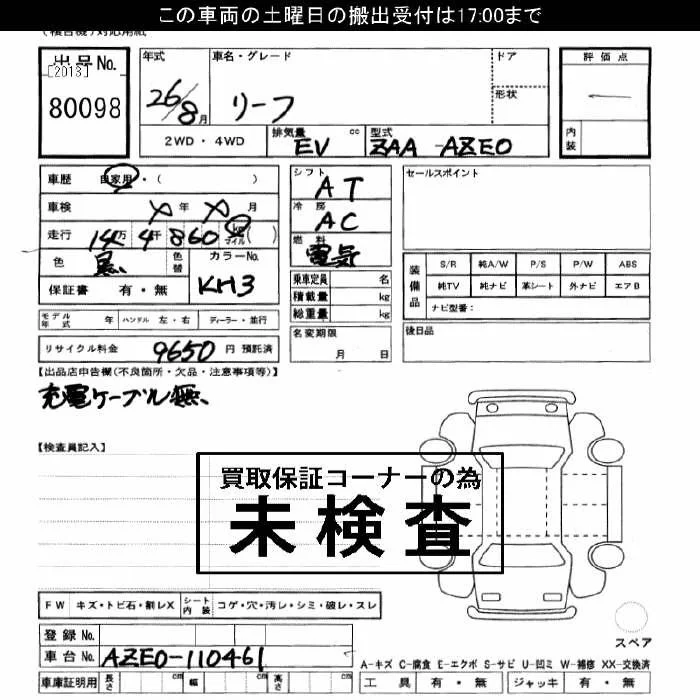 この車両の土曜日の搬出受付は17:00まで
出品No.
[2013]
80098
年式 車名・グレード ドア 評価点
26/8月 リーフ 形状
2WD・4WD 排気量 cc 型式 内装
EV ZAA-AZE0
車歴 自家用・( )
シフト AT
セールスポイント
車検 年 月
冷房 AC
走行 14万4千860 km マイル ( )
燃料 電気
色 黒 色替 カラーNo.
KH3
保証書 有・無
乗車定員 名
積載量 kg
総重量 kg
装備品 S/R 純A/W P/S P/W ABS
純TV 純ナビ 革シート 外ナビ エアB
ナビ型番:
モデル年式 年 ハンドル 左・右 ディーラー・並行
名変期限
月 日
後日品
リサイクル料金 9650 円 預託済
【出品店申告欄(不良箇所・欠品・注意事項等)】
充電ケーブル無、
【検査員記入】
買取保証コーナーの為
未検査
FW キズ・トビ石・割レX シート内装 コゲ・穴・汚レ・シミ・破レ・スレ
登録No.
スペア
車台No. AZE0-110461
A-キズ C-腐食 E-エクボ S-サビ U-凹ミ W-補修 XX-交換済
車庫証明用 長さ cm 幅 cm 高さ cm 工具 有・無 ジャッキ 有・無